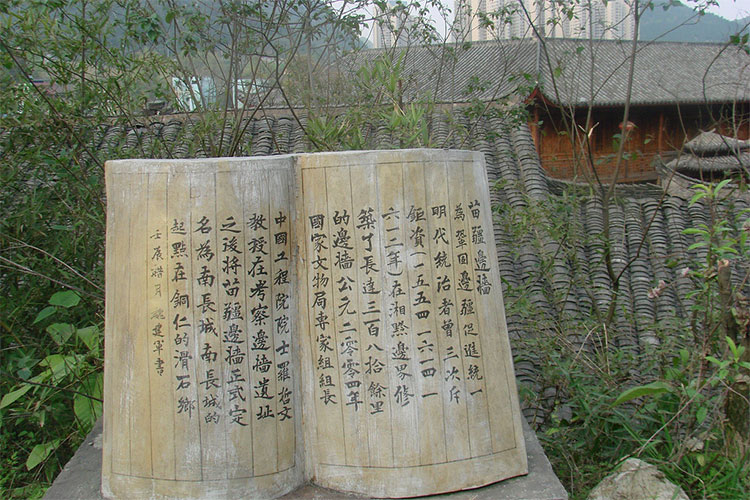 苗疆邊墻
為鞏固邊疆促進統一
明代統治者曾三次斥
鉅資(一五五四一六四一
六一二年)在湘黔邊界修
築了長達三百八拾餘里
的邊墻公元二零零四年
國家文物局專家組組長
中國工程院院士羅哲文
教授在考察邊墻遺址
之後將苗疆邊墻正式定
名為南長城南長城的
起點在銅仁的滑石鄉
壬辰皓月姚建軍書